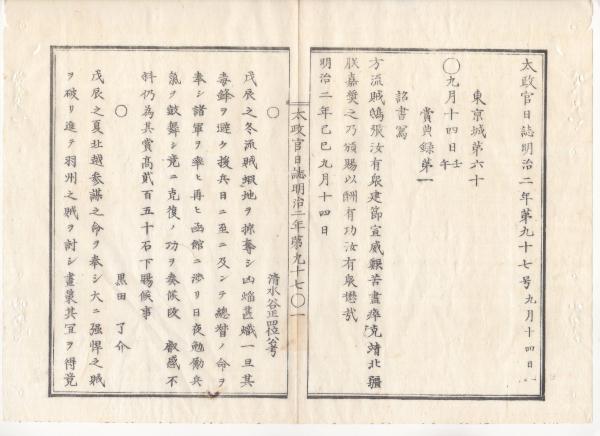 太政官日誌明治二年第九十七号 九月十四日
東京城第六十
〇九月十四日壬午
賞典録第一
詔書寫
方流賊鴟張汝有衆建節宣威艱苦盡瘁克靖北疆
朕嘉奬之乃頒賜以酬有功汝有衆懋哉
明治二年己巳九月十四日
太政官日誌明治二年第九十七〇一
〇
清水谷正四位公考
戊辰之冬流賊蝦地ヲ掠奪シ凶焔甚熾一旦其
毒鋒ヲ避ケ援兵日ニ至ニ及ンテ總督ノ命ヲ
奉シ諸軍ヲ率ヒ再ヒ函館ニ渉リ日夜勉勵兵
氣ヲ鼓舞シ竟ニ克復ノ功ヲ奏候段 叡感不
斜仍為其賞髙貳百五十石下賜候事
〇
黒田 了介
戊辰之夏北越参謀之命ヲ奉シ大ニ强悍之賊
ヲ破リ進テ羽州之賊ヲ討シ畫策其宜ヲ得竟